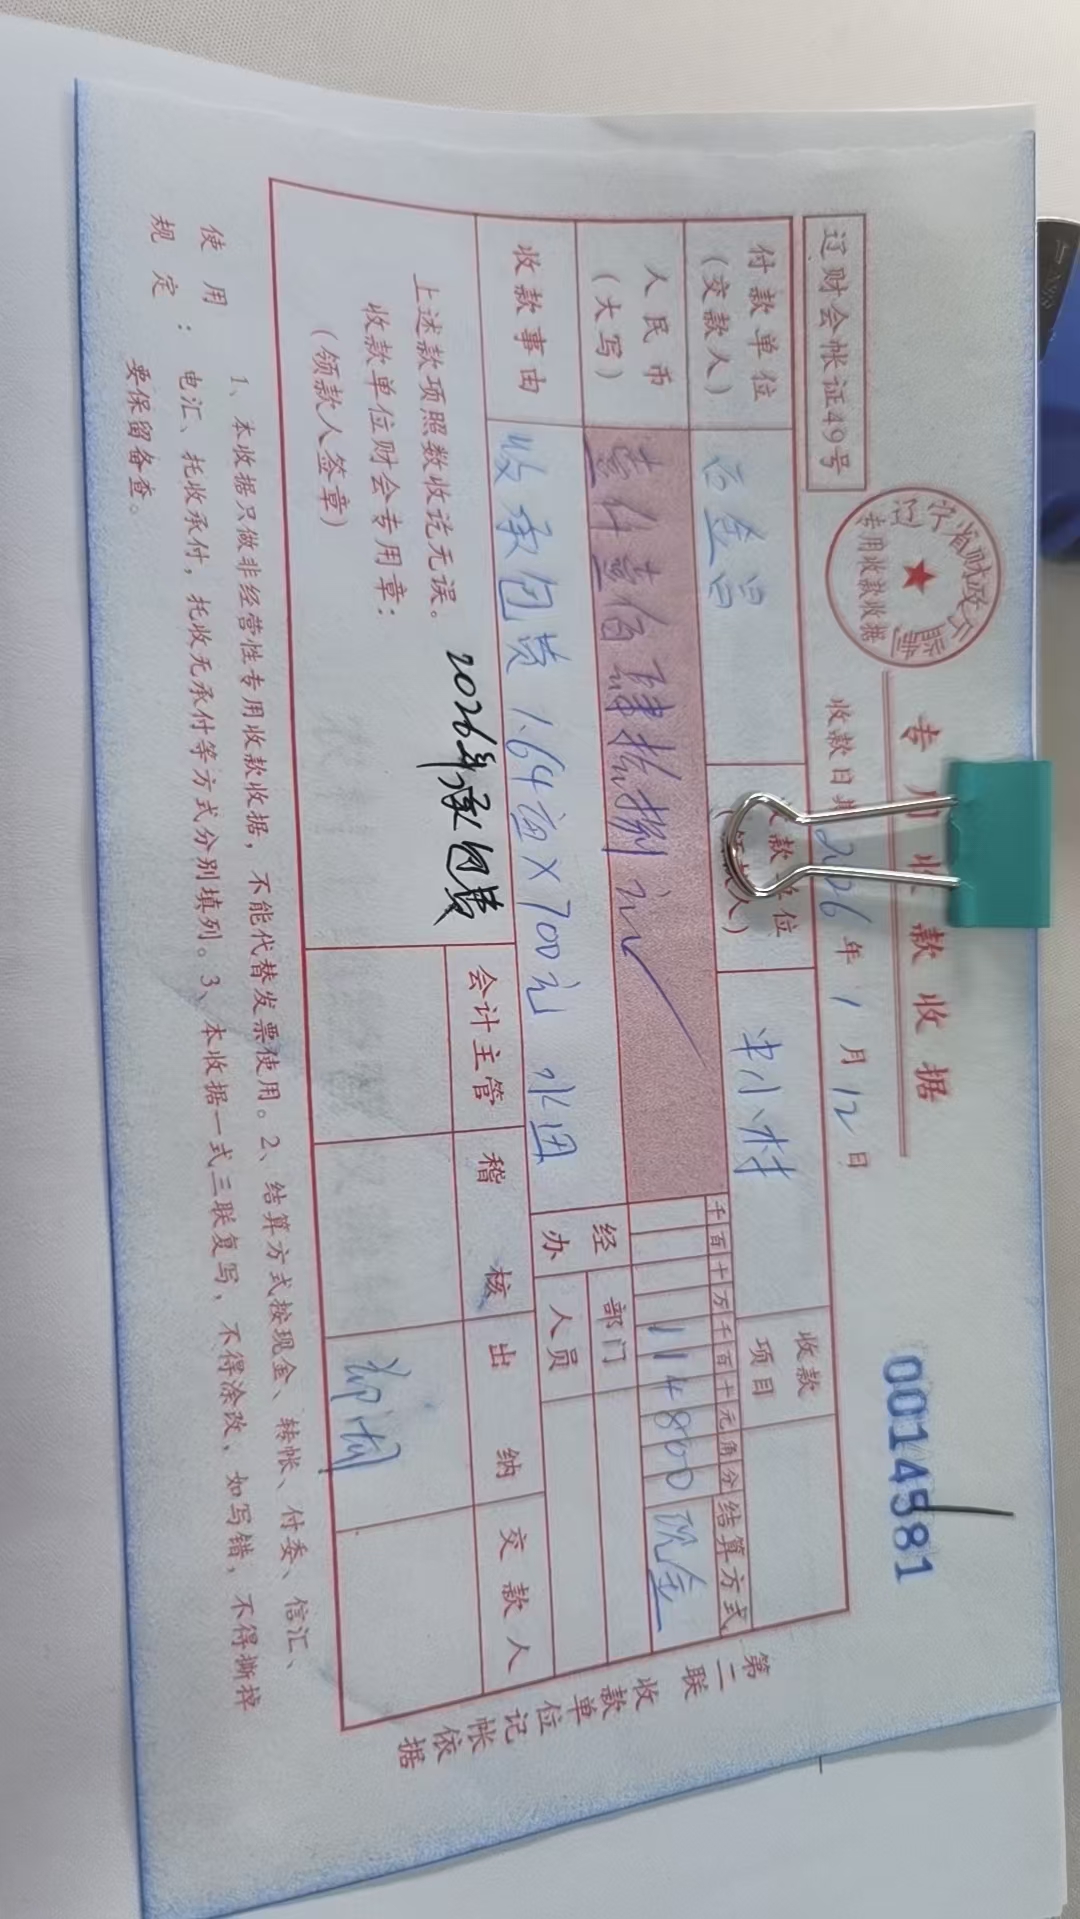 辽财会帐证49号
辽宁省财政厅监制
专用收款收据
专用收款收据
0014581
收款日期 2026年1月12日
付款单位(交款人) 石金昌 收款单位(领款人) 中小村 收款项目
人民币(大写) 壹仟壹佰肆拾捌元
千百十万千百十元角分 结算方式
114800 现金
收款事由 收承包费 1.64亩×700元 水田
经办 部门
人员
2026年承包费
上述款项照数收讫无误。
收款单位财会专用章:
(领款人签章)
会计主管 稽核 出纳 交款人
第二联 收款单位记帐依据
使用规定: 1、本收据只做非经营性专用收款收据,不能代替发票使用。2、结算方式按现金、转帐、付委、信汇、
电汇、托收承付,托收无承付等方式分别填列。3、本收据一式三联复写,不得涂改,如写错,不得撕掉
要保留备查。